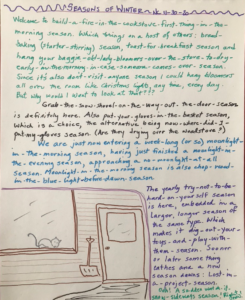 SEASONS OF WINTER
Welcome to build-a-fire-in-the-cookstove-first-thing-in-the-
morning season. Which brings on a host of others: bread-
baking (starter-stirring) season, toast-for-breakfast season and
hang your baggie-old-lady-bloomers-over-the-stove-to-dry-
early-in-the-morning-in-case-someone-comes-over season.
Since it's also don't-visit-anyone season I could hang bloomers
all over the room like Christmas lights, any time, every day.
But why would I want to look at that?!!
Grab-the-snow-shovel-on-the-way-out-the-door season
is definitely here. Also put-your-gloves-in-the-basket season,
which is a choice, the alternative being now-where-did-I-
put-my-gloves season. (Are they drying over the woodstove?)
We are just now entering a week-long (or so) moonlight-
in-the-morning season, having just finished a moonlight-in-
the-evening season, approaching a no-moonlight-at-all
season. Moonlight-in-the-morning season is also
in-the-blue-light-before-dawn season.
The yearly try-not-to-be-
hard-on-your-self season
is here, embedded in a
larger, longer season of
the same type. Which
makes it dig-out-your-
toys-and-play-with-
them-season. Sooner
or later some thing
catches and a new
season dawns: Lost-in-
a-project-season.